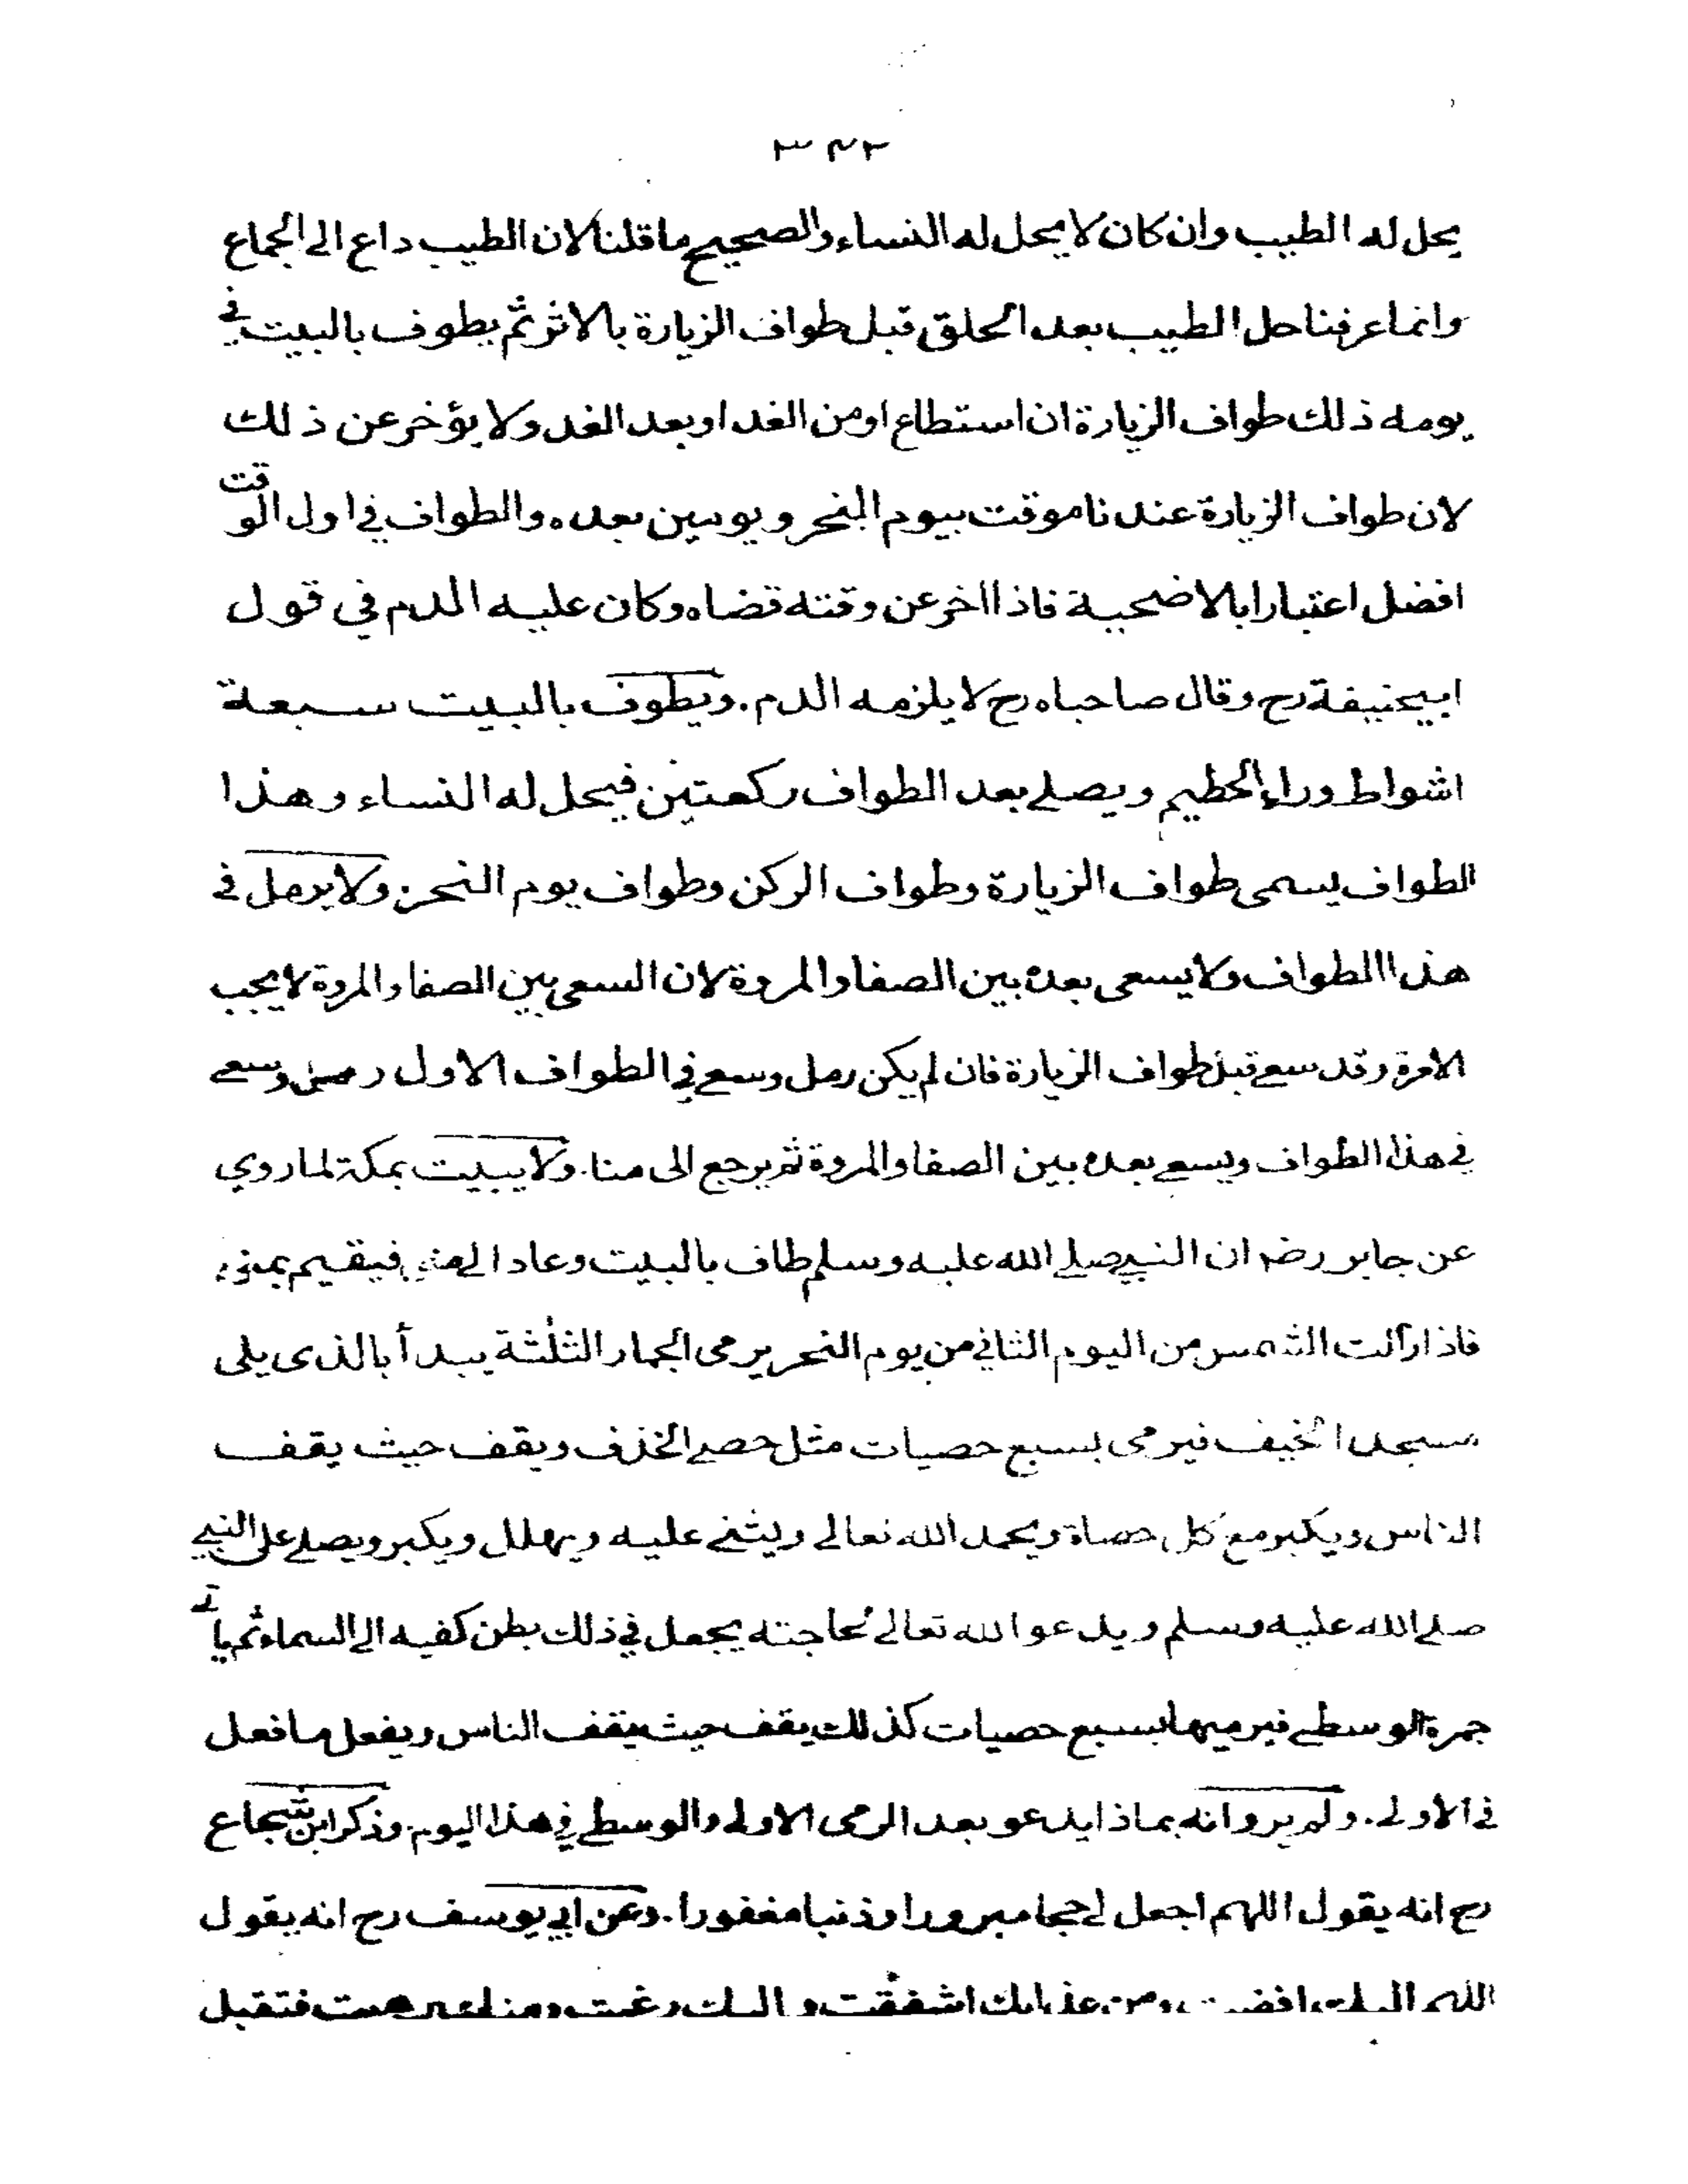 ٣٤٢
يحل له الطيب وان كان لا يحل له النساء والصحيح ما قلنا لان الطيب داع الى الجماع
وانما عرفنا حل الطيب بعد الحلق قبل طواف الزيارة بالاثر ثم يطوف بالبيت في
يومه ذلك طواف الزيارة ان استطاع او من الغد او بعد الغد ولا يؤخر عن ذلك
لان طواف الزيارة عندنا موقت بيوم النحر و يومين بعده والطواف في اول الوقت
افضل اعتبارا بالاضحية فاذا اخر عن وقته قضاه وكان عليه الدم في قول
ابيحنيفة رح وقال صاحباه رح لا يلزمه الدم. ويطوف بالبيت سبعة
اشواط وراء الحطيم ويصلے بعد الطواف ركعتين فيحل له النساء وهذا
الطواف يسمى طواف الزيارة وطواف الركن وطواف يوم النحر. ولا يرمل في
هذا الطواف ولا يسعى بعده بين الصفا والمروة لان السعي بين الصفا والمروة لا يجب
الامرة وقد سعے قبل طواف الزيارة فان لم يكن رمل وسعے في الطواف الاول رمل وسعے
في هذا الطواف ويسعے بعده بين الصفا والمروة ثم يرجع الى منا. ولا يبيت بمكة لما روي
عن جابر رضـ ان النبي صلے الله عليه وسلم طاف بالبيت وعاد الے منى فيقيم بمنى.
فاذا زالت الشمس من اليوم الثاني من يوم النحر يرمى الجمار الثلثة يبدأ بالذى يلى
مسجد الخيف فيرمى بسبع حصيات مثل حصے الخذف ويقف حيث يقف
الناس ويكبر مع كل حصاة ويحمد الله تعالى ويثنے عليه ويهلل ويكبر ويصلے على النبي
صلے الله عليه وسلم ويدعو الله تعالى لحاجته يجعل في ذلك بطن كفيه الى السماء ثم ياتے
جمرة الوسطے فيرميها بسبع حصيات كذلك يقف حيث يقف الناس ويفعل ما فعل
في الاولے. ولم يروانه بماذا يدعو بعد الرمى الاولى والوسطے في هذا اليوم. وذكر ابن شجاع
رح انه يقول اللهم اجعل لے حجا مبرورا وذنبا مغفورا. وعن ابي يوسف رح انه يقول
اللهم اليك افضت ومن عذابك اشفقت واليك رغبت ومنك رهبت فتقبل